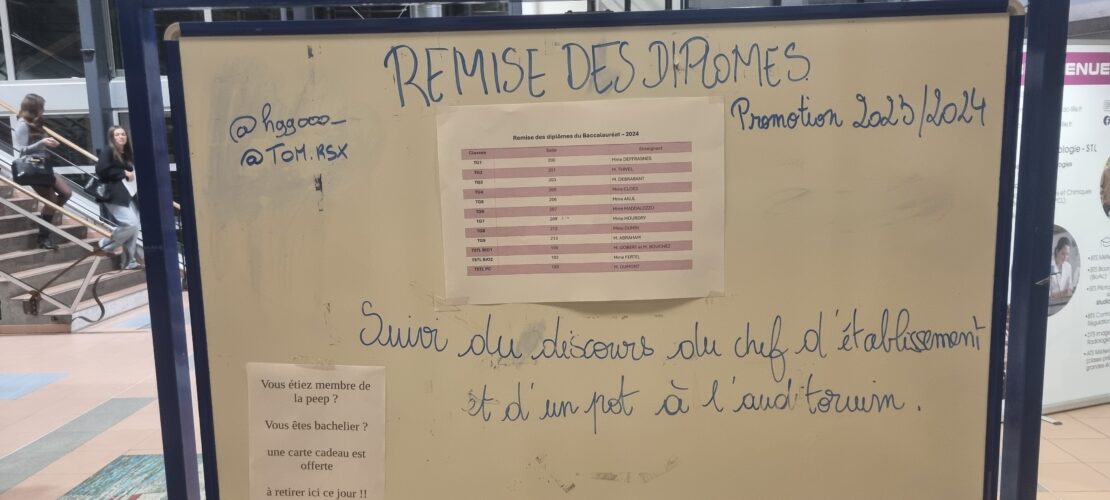 REMISE DES DIPLOMES
@hggooo_
@TOM.RSX
Promotion 2023/2024
Remise des diplômes du Baccalauréat - 2024
Classes Salle Enseignant
TG1 200
TG2 201 M. THIVEL
TG3 203 M. DEBRABANT
TG4 205 Mme CLOEZ
TG5 206
TG6 207 Mme MADDALOZZO
TG7 209 Mme MOURDRY
TG8 212
TG9 213 M. ABRAHAM
TSTL BIO1 M. GOBERT et M. BOUCHEZ
TSTL BIO2 Mme FERTEL
TSTL PC M. DUMONT
Suivi du discours du chef d'établissement
et d'un pot à l'auditorium.
Vous étiez membre de
la peep ?
Vous êtes bachelier ?
une carte cadeau est
offerte
à retirer ici ce jour !!
ENUE
ologie - STL